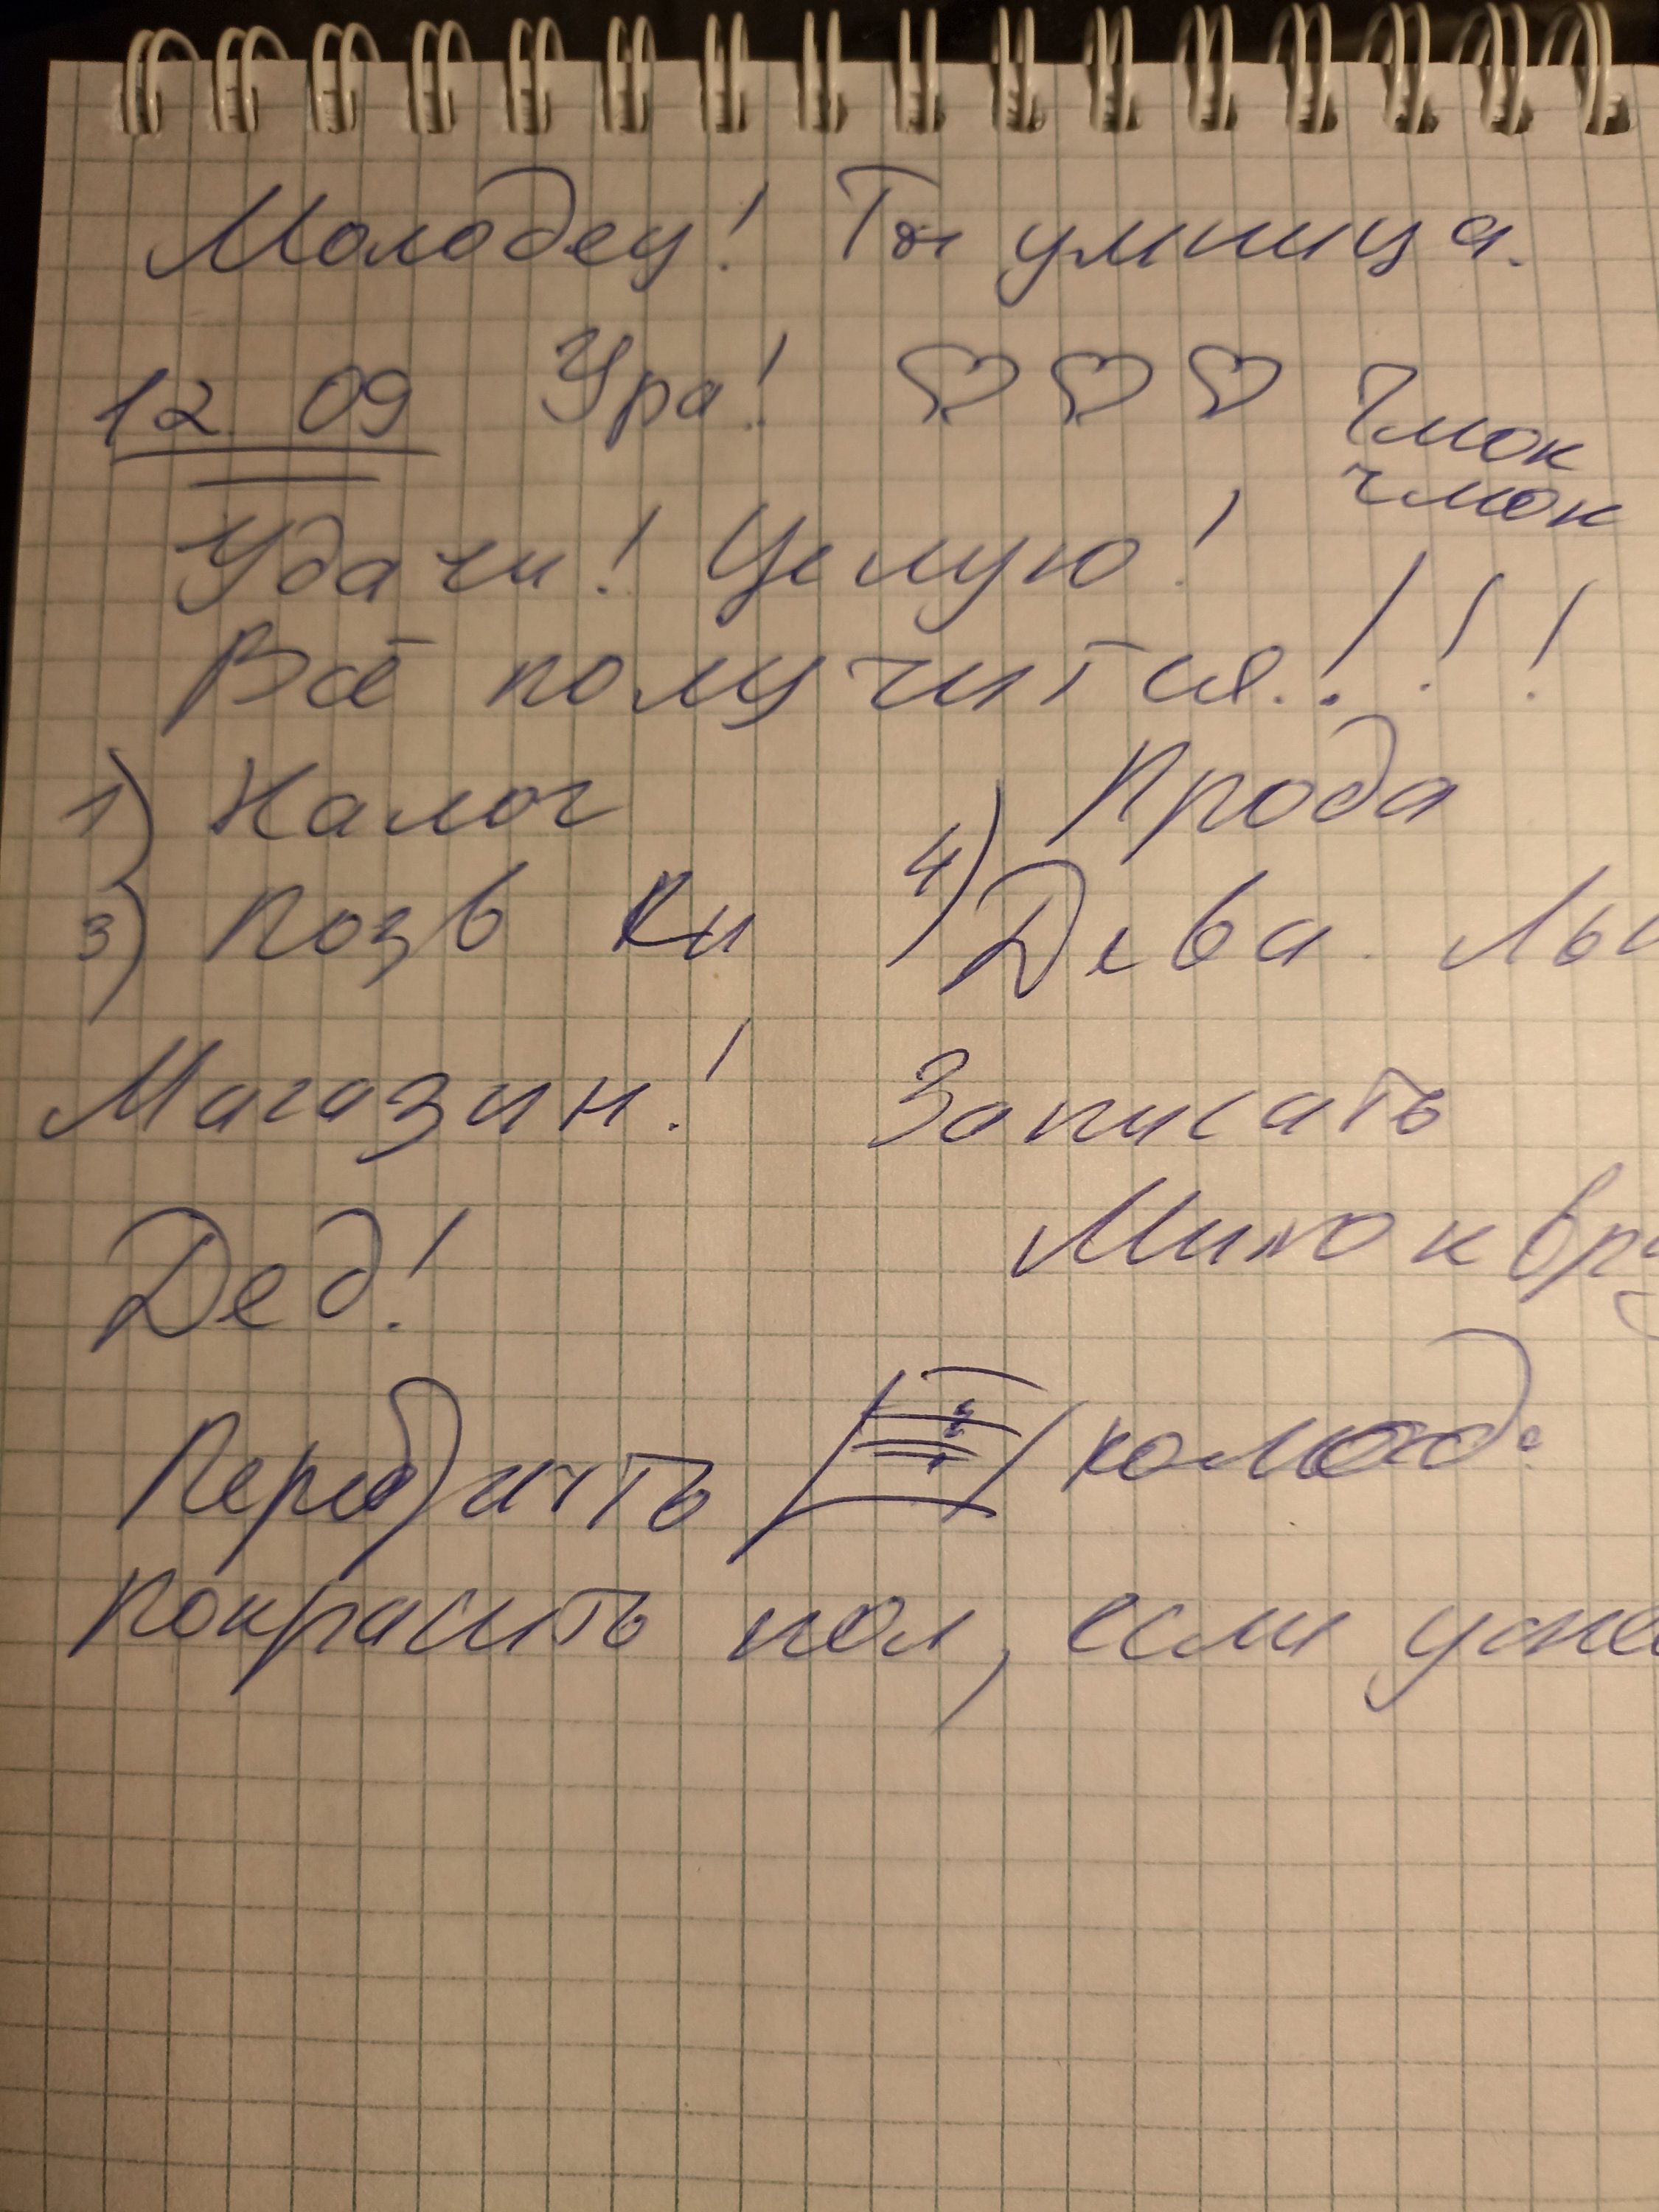 Молодец! Ты умница.
12 09 Ура! ♡ ♡ ♡ Чмок
чмок
Удачи! Целую!
Всё получится!!!
1) Налог
Прода
3) Позв Ки
4) Дева. Лы
Магазин! Записать
Мило к вр
Дед!
Перебить колод
Покрасить пол, если успе